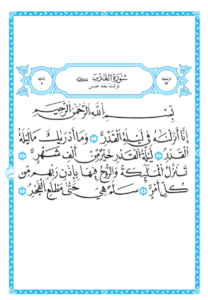 سُورَةُ الْقَدْرِ مَكِّيَّة
نزلت بعد عبس
بِسْمِ اللَّهِ الرَّحْمَٰنِ الرَّحِيمِ
إِنَّا أَنزَلْنَاهُ فِي لَيْلَةِ الْقَدْرِ ۝ وَمَا أَدْرَاكَ مَا لَيْلَةُ
الْقَدْرِ ۝ لَيْلَةُ الْقَدْرِ خَيْرٌ مِّنْ أَلْفِ شَهْرٍ ۝
تَنَزَّلُ الْمَلَائِكَةُ وَالرُّوحُ فِيهَا بِإِذْنِ رَبِّهِم مِّن
كُلِّ أَمْرٍ ۝ سَلَامٌ هِيَ حَتَّىٰ مَطْلَعِ الْفَجْرِ ۝